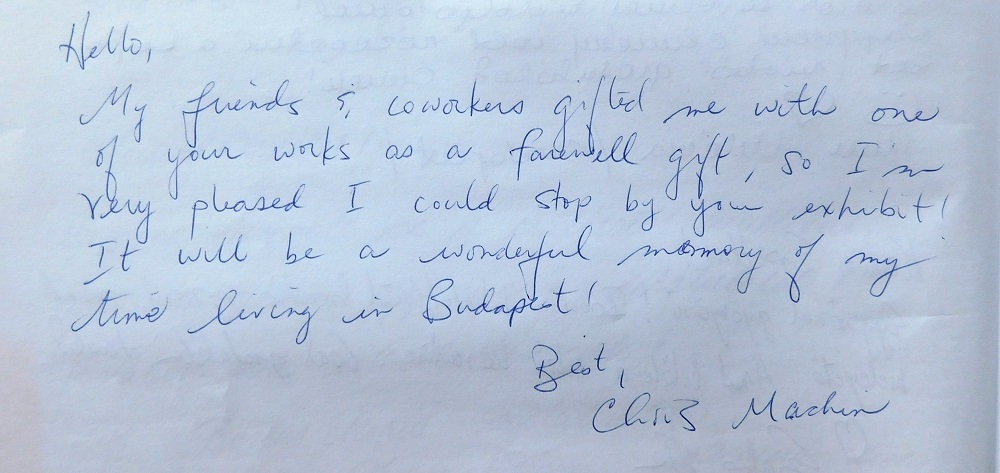 Hello,
My friends & coworkers gifted me with one
of your works as a farewell gift, so I am
very pleased I could stop by your exhibit!
It will be a wonderful memory of my
time living in Budapest!
Best,
Chris Machin